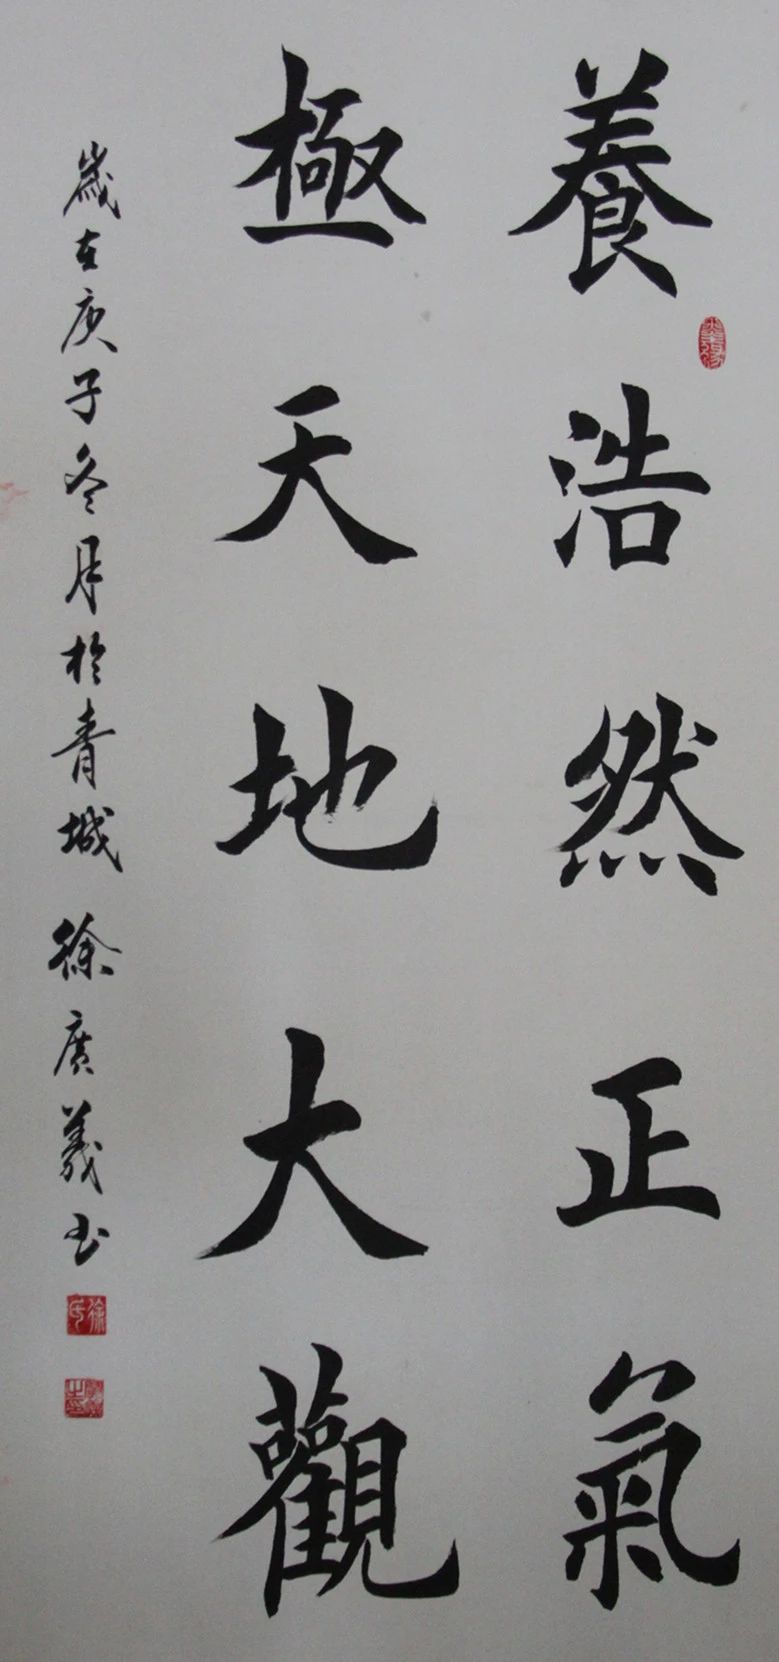 養浩然正氣
極天地大觀
歲在庚子冬月於青城 徐廣義书
徐氏